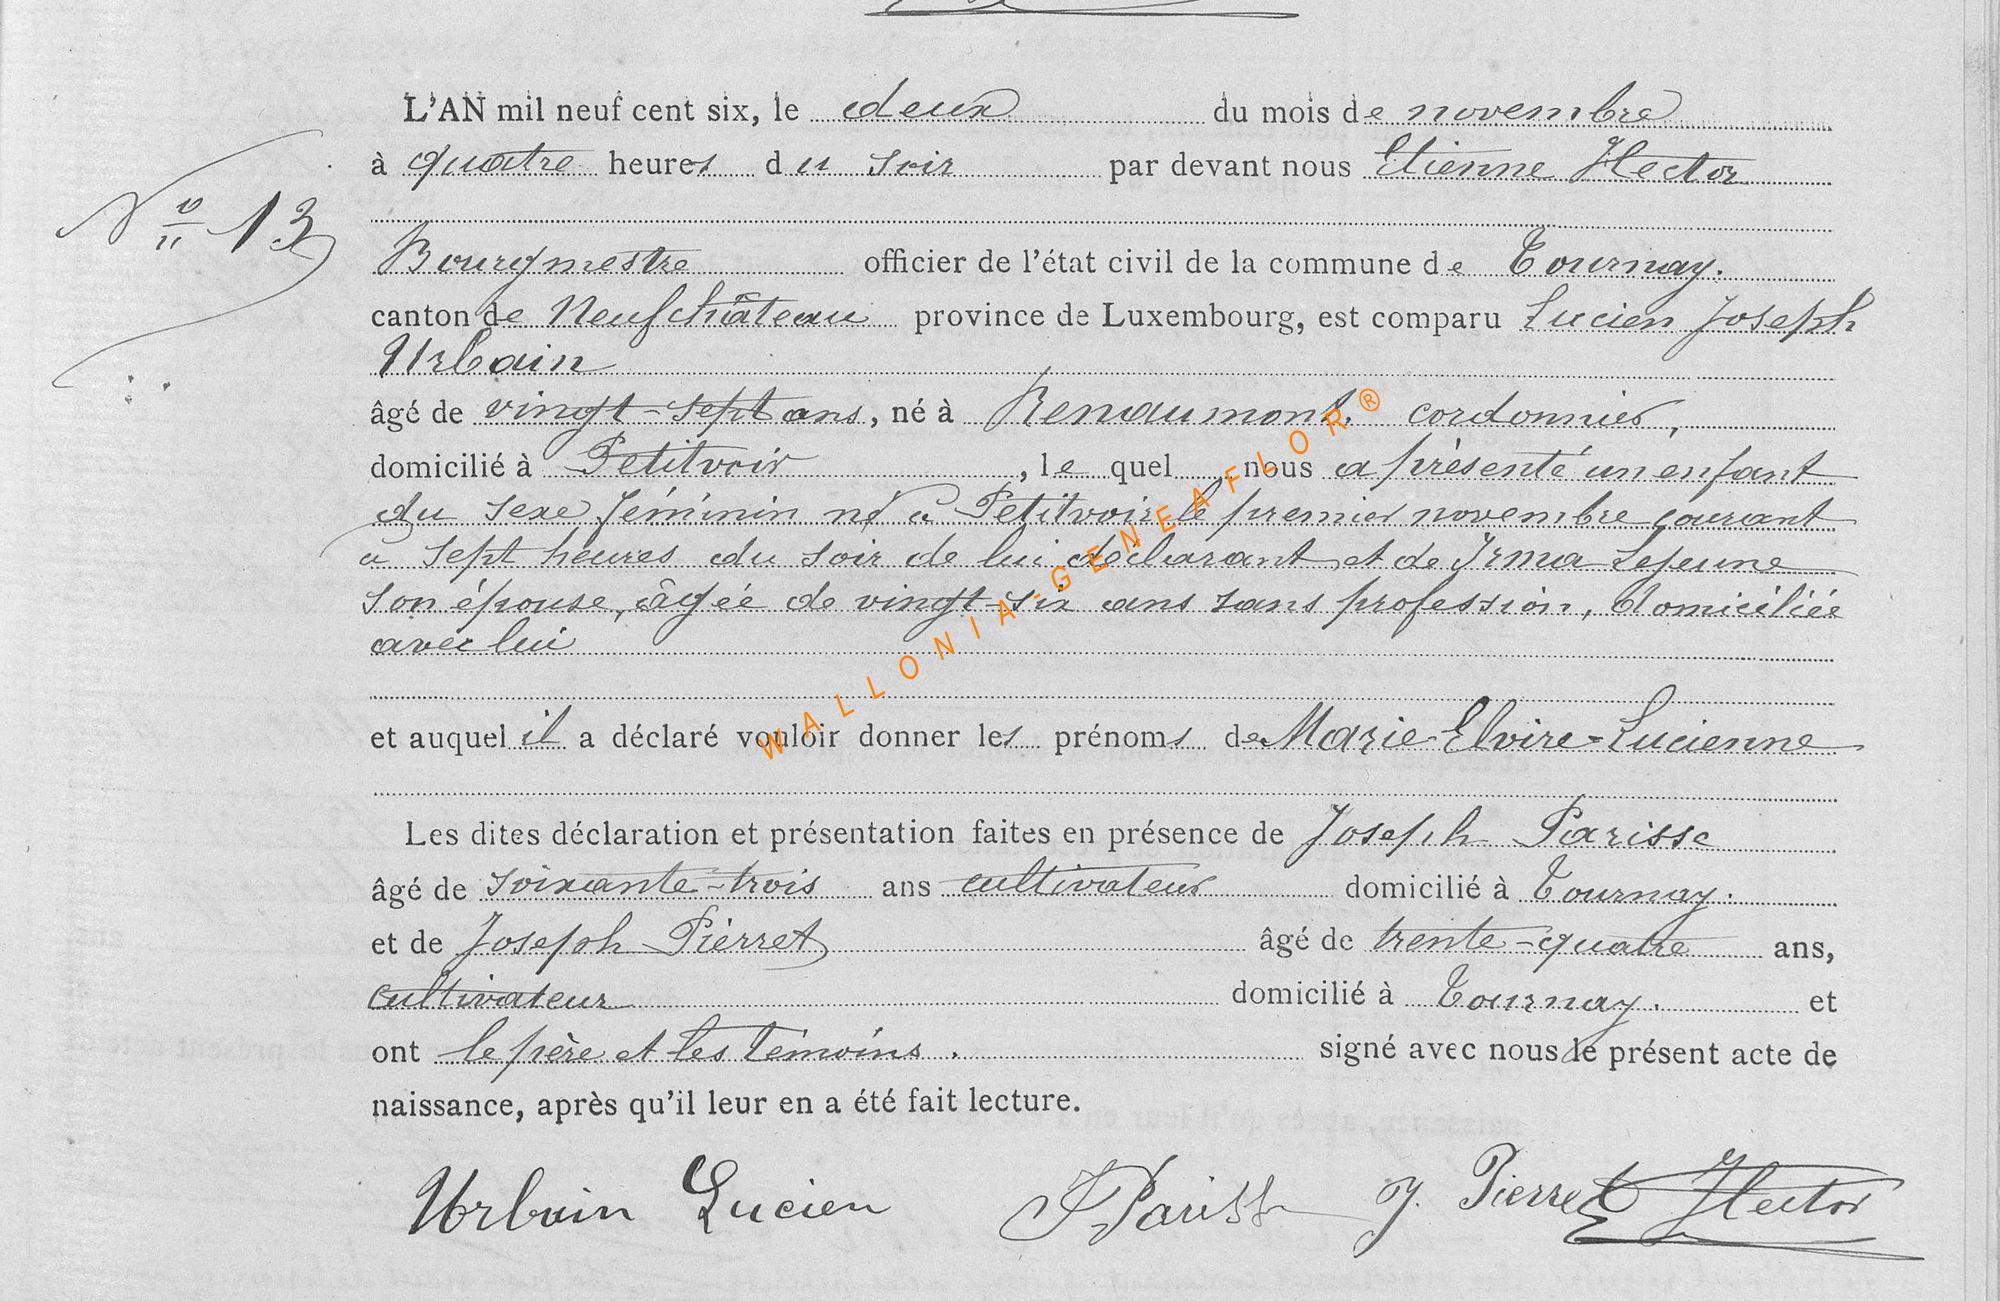 L'AN mil neuf cent six, le deux du mois de novembre
à quatre heures du soir par devant nous Etienne Hector
Nº 13
Bourgmestre officier de l'état civil de la commune de Tournay.
canton de Neufchâteau province de Luxembourg, est comparu Lucien Joseph
Urbain
âgé de vingt-sept ans, né à Renaumont, cordonnier,
domicilié à Petitvoir, le quel, nous a présenté un enfant
du sexe féminin né à Petitvoir le premier novembre courant
à sept heures du soir de lui déclarant et de Irma Lejeune
son épouse, âgée de vingt-six ans sans profession, domiciliée
avec lui
WALLONIA-GENEAFLOR®
et auquel il a déclaré vouloir donner les prénoms de Marie-Elvire-Lucienne
Les dites déclaration et présentation faites en présence de Joseph Parisse
âgé de soixante-trois ans cultivateur domicilié à Tournay.
et de Joseph Pierret âgé de trente-quatre ans,
cultivateur domicilié à Tournay. et
ont le père et les témoins. signé avec nous le présent acte de
naissance, après qu'il leur en a été fait lecture.
Urbain Lucien J Parisse J. Pierret E Hector